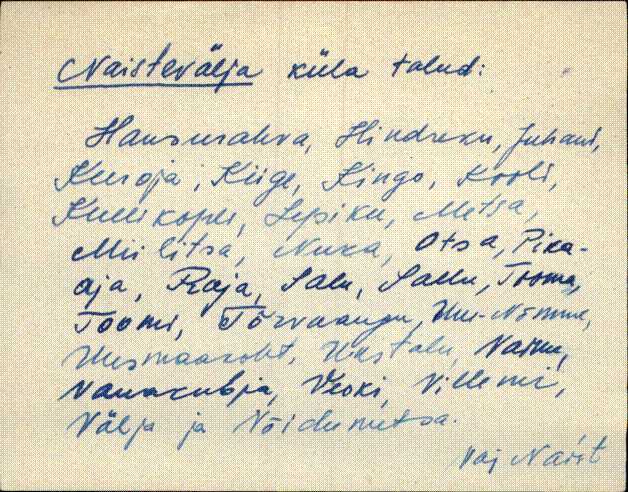 Naistevälja küla talud:
Hansurahva, Hindreku, Juhani,
Keeroja, Kiige, Kingo, Kooli,
Kullikopli, Lepiku, Metsa,
Miilitsa, Nuka, Otsa, Pika-
aja, Raja, Salu, Sallu, Tooma,
Toomi, Tõrvaaugu, Uue-Nõmme,
Uusmaakoht, Uustalu, Vainu,
Vanakubja, Veski, Villemi,
Välja ja Nõidumetsa.
Naist